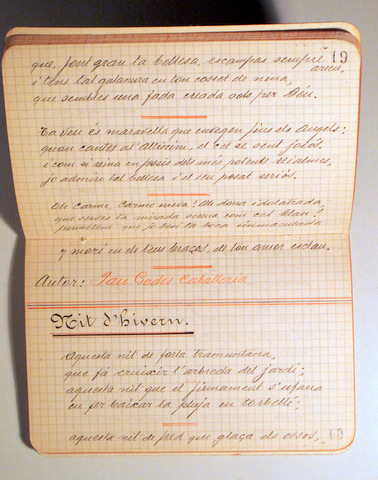 que, fent gran ta bellesa, escampas sempre arreu,
19
i tens tal galanura en ton cosset de nina,
que sembles una fada creada sols per Déu.
Ta veu és maravella que envegen fins els Angels;
quan cantes al Altíssim, el cel se sent joiós,
i com si reina fossis dels més potents reialmes,
jo admiro tal bellesa i el seu posat seriós.
Oh Carme, Carme meva! Oh dona idolatrada,
que serves ta mirada serena com cel blau!
permeteu que jo besi ta boca immaculada
y mori en de teus braços, de ton amor esclau.
Autor: Pau Godes Caballeria
Nit d'hivern.
Aquesta nit de forta tramuntana,
que fá cruixir l'arbreda del jardí;
aquesta nit que el firmament s'ufana
en fer baixar la pluja en torbellí;
aquesta nit de fred que glaça els ossos,